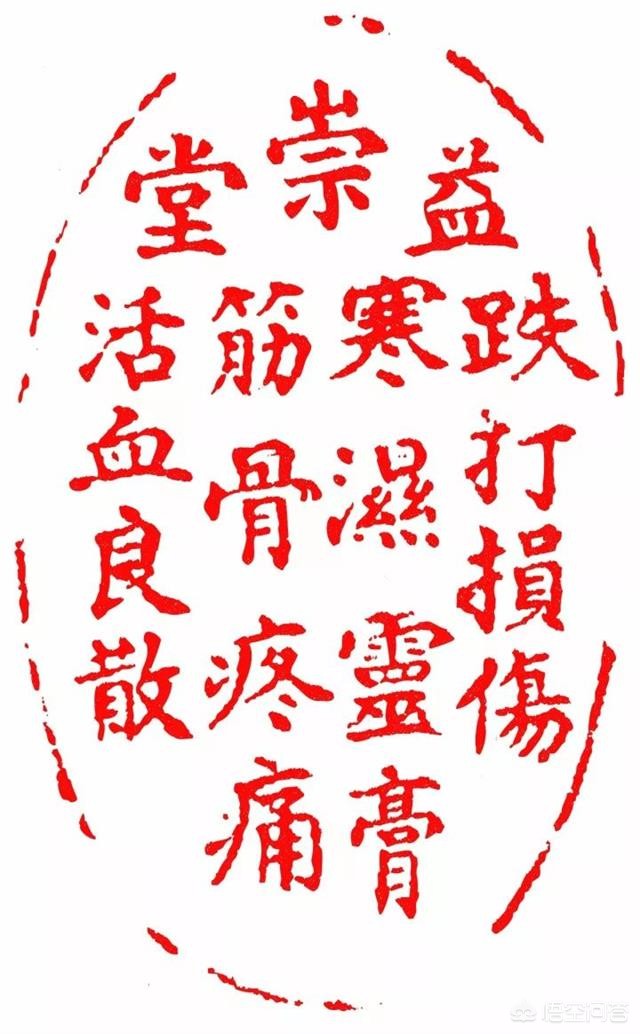 益崇堂
跌打損傷
寒濕靈膏
筋骨疼痛
活血良散
悟空问答